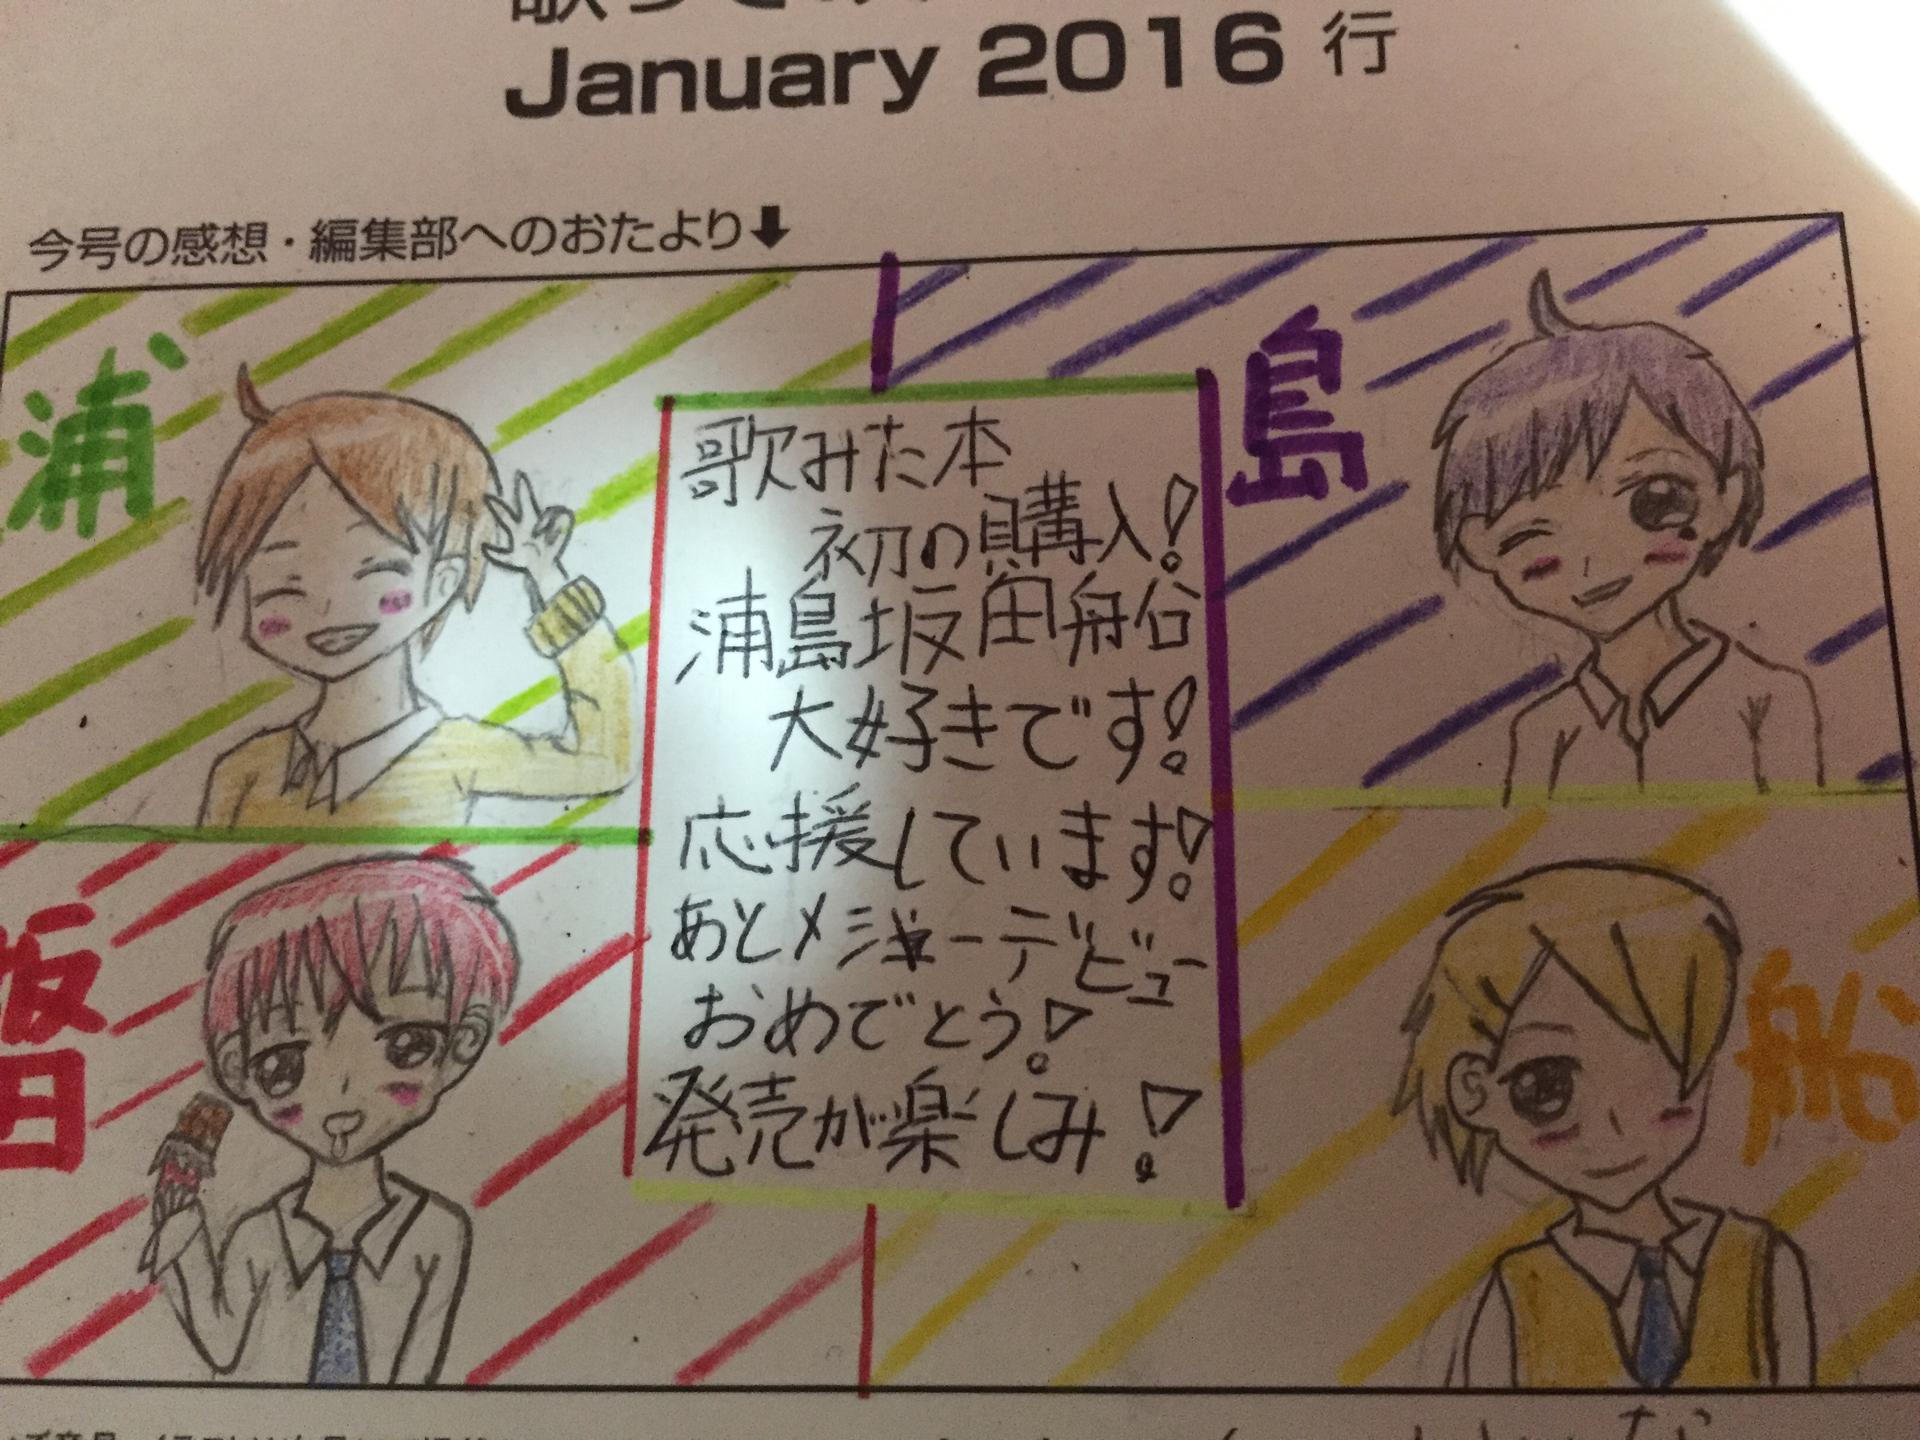 January 2016 行
今号の感想・編集部へのおたより⬇
浦
島
歌みた本
初の購入!
浦島坂田船
大好きです!
応援しています!
あとメジャーデビュー
おめでとう!
発売が楽しみ!
坂
田
船